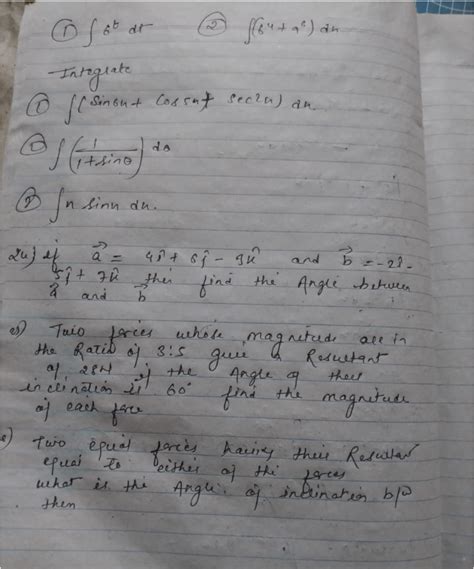 ① ∫ 6^t dt ② ∫(6^4 + a^6) du
Integrate
① ∫ (Sin6u + Cos5u + sec2u) du.
① ∫ (1/1+sinθ) dθ
② ∫ n sinu du.
24) if a⃗ = 4î + 6ĵ - 9k̂ and b⃗ = -2î -
5ĵ + 7k̂ then find the Angle between
a⃗ and b⃗
25) Two forces whose magnitude are in
the Ratio of 3:5 give a Resultant
of 28N if the Angle of their
inclination is 60° find the magnitude
of each force
Two equal forces having their Resultant
equal to either of the forces
what is the Angle of inclination b/w
then